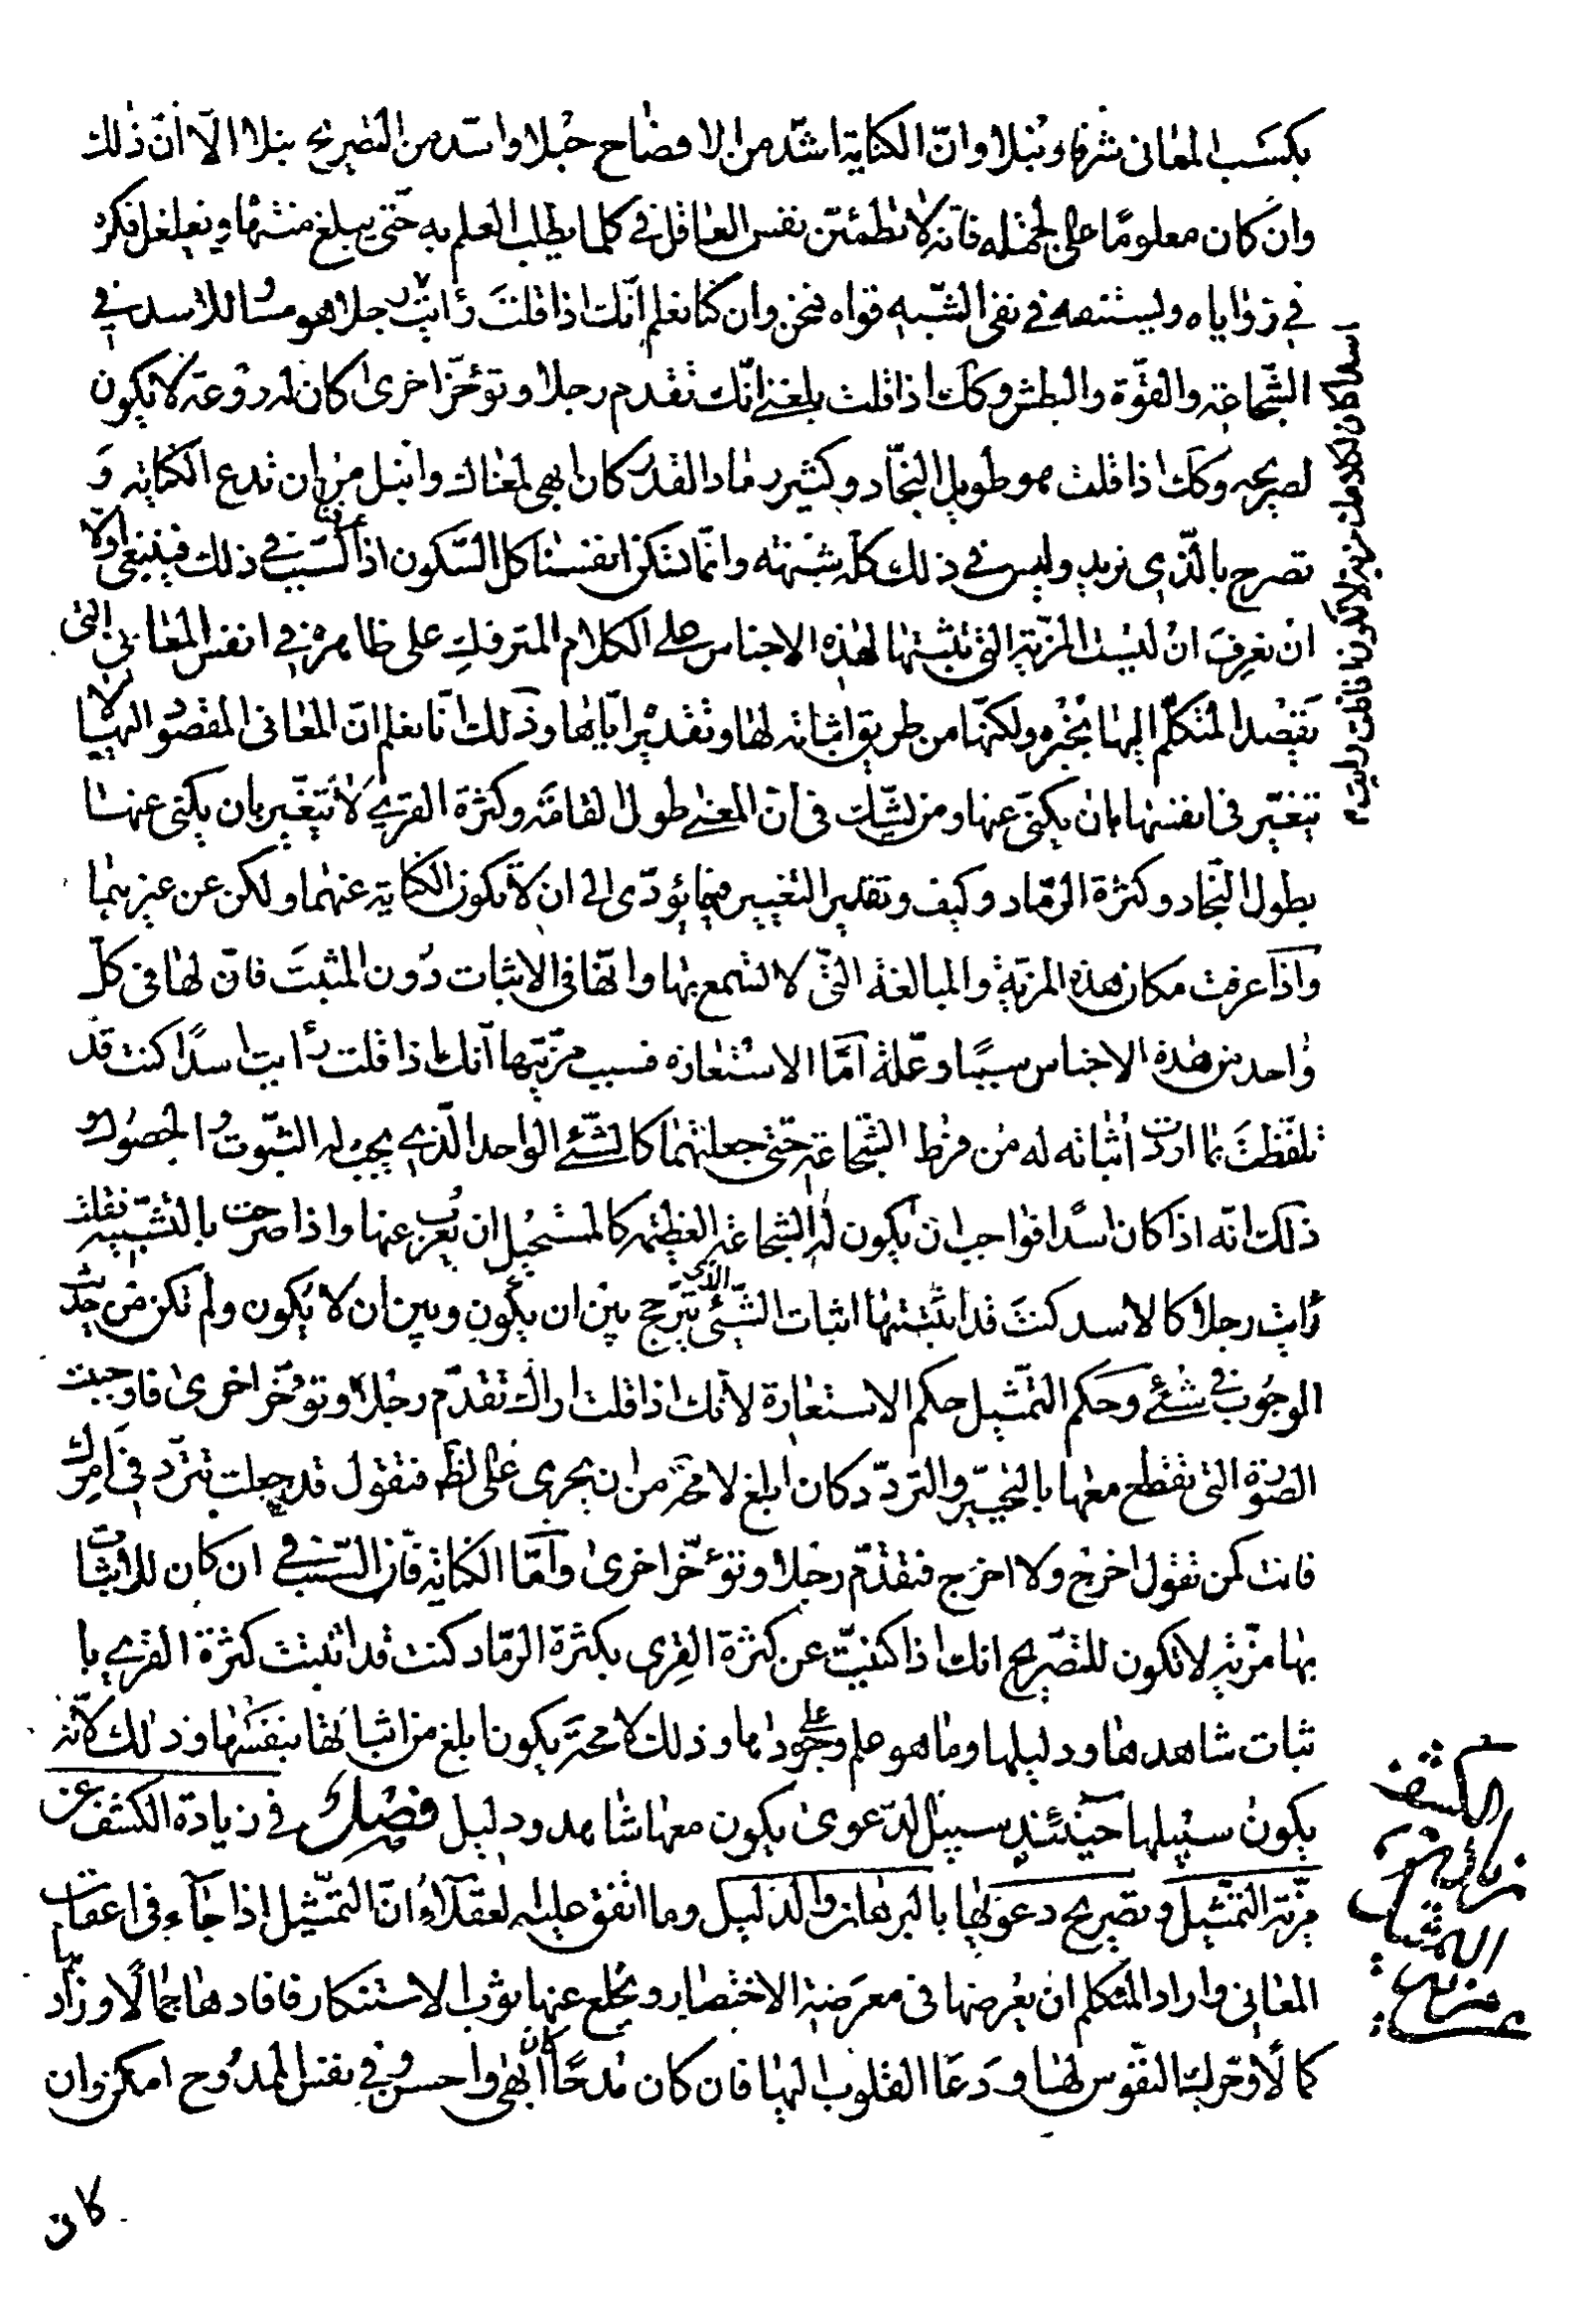 يكسب المعانى شرفا ونبلا وانّ الكناية اشدّ من الافضاح حبلا واسدّ من التصريح نبلا الّا انّ ذلك
وان كان معلومًا على الجمله فانه لا تطمئنّ نفس العاقل فى كلما يطلب العلم به حتّى يبلغ منتهاه ويغلغل فكره
فى زواياه ويستنهضه فى نفى الشبه قواه فنحن وان كنا نعلم انّك اذا قلت رأيت رجلا هو مساو للاسد فى
الشجاعة والقوّة والبطش وكك اذا قلت بلغنى انّك تقدم رجلا وتؤخّر اخرى كان له روعة لا تكون
لصريحه وكك اذا قلت هو طويل النجاد وكثير رماد القدر كان ابهى لمعناك وانبل من ان تدع الكناية و
تصرح بالّذى تريد وليس فى ذلك كلّه شبهة وانّما تسكن انفسنا كل السّكون اذا عرفنا السّبب فى ذلك فينبغى اولا
ان نعرف ان ليست المزيّة التى تثبتها لهذه الاجناس على الكلام المتروك على ظاهره فى انفس المعانى التى
يقصد المتكلّم اليها بخبره ولكنّها من طريق اثباته لها وتقديره ايّاها وذلك انّا نعلم انّ المعانى المقصود اليها لا
تتغيّر فى انفسها بان يكنى عنها ومن يشك فى انّ المعنى طول القامة وكثرة القرى لا يتغيّر بان يكنى عنهما
بطول النّجاد وكثرة الرّماد وكيف وتقدير التغيير فيهما يؤدّى الى ان لا تكون الكناية عنهما ولكن عن غيرهما
واذا عرفت مكان هذه المزيّة والمبالغة التّى لا تسمع بها وانّها فى الاثبات دون المثبت فانّ لها فى كلّ
واحد من هذه الاجناس سببًا وعلّة امّا الاستعاره فسبب مزيّتها انّك اذا قلت رأيت اسدًا كنت قد
تلفّظت بما اردت اثباته له من فرط الشجاعة حتى جعلتها كالشئ الواحد الّذى يجب له الثبوت والحصول و
ذلك انّه اذا كان اسدًا فواجب ان يكون له الشجاعة العظيمه كالمستحيل ان يعرى عنها واذا صرحت بالتشبيه فقلت
رأيت رجلا كالاسد كنت قد اثبتها اثبات الشئ الذى يترجح بين ان يكون وبين ان لا يكون ولم تكن من حديث
الوجوب فى شئ وحكم التمثيل حكم الاستعارة لانّك اذا قلت اراك تقدّم رجلا وتؤخّر اخرى فاوجبت
الصّورة التى تقطع معها بالتحيّر والتردّد كان ابلغ لا محة من ان يجرى على الظ فتقول قد جعلت تتردّد فى امرك
فانت كمن تقول اخرج ولا اخرج فتقدّم رجلا وتؤخّر اخرى وامّا الكناية فانّ السّبب فى ان كان للاثبات
بها مزيّة لا تكون للتصريح انك اذا كنيت عن كثرة القرى بكثرة الرمّاد كنت قد اثبتت كثرة القرى با
ثبات شاهدها ودليلها وما هو علم على وجودها وذلك لا محة يكون ابلغ من اثباتها بنفسها وذلك لانّه
يكون سبيلها حينئذ سبيل الدّعوى يكون معها شاهد ودليل فصل فى زيادة الكشف عن
مزيّة التمثيل وتصريح دعويها بالبرهان والدليل وما اتفق عليه العقلاء انّ التمثيل اذا جاء فى اعقاب
المعانى واراد المتكلم ان يعرضها فى معرضة الاختصار ويخلع عنها ثوب الاستنكار فافادها جمالا وزادها
كمالا وحرّك النّفوس لها ودعا القلوب اليها فان كان مدحًا كان ابهى واحسن وفى نفس الممدوح امكن وان
كان
اسدا كان لكلامك مزية لا تكون اذا قلت رايت
الكشف
مزية
التمثيل